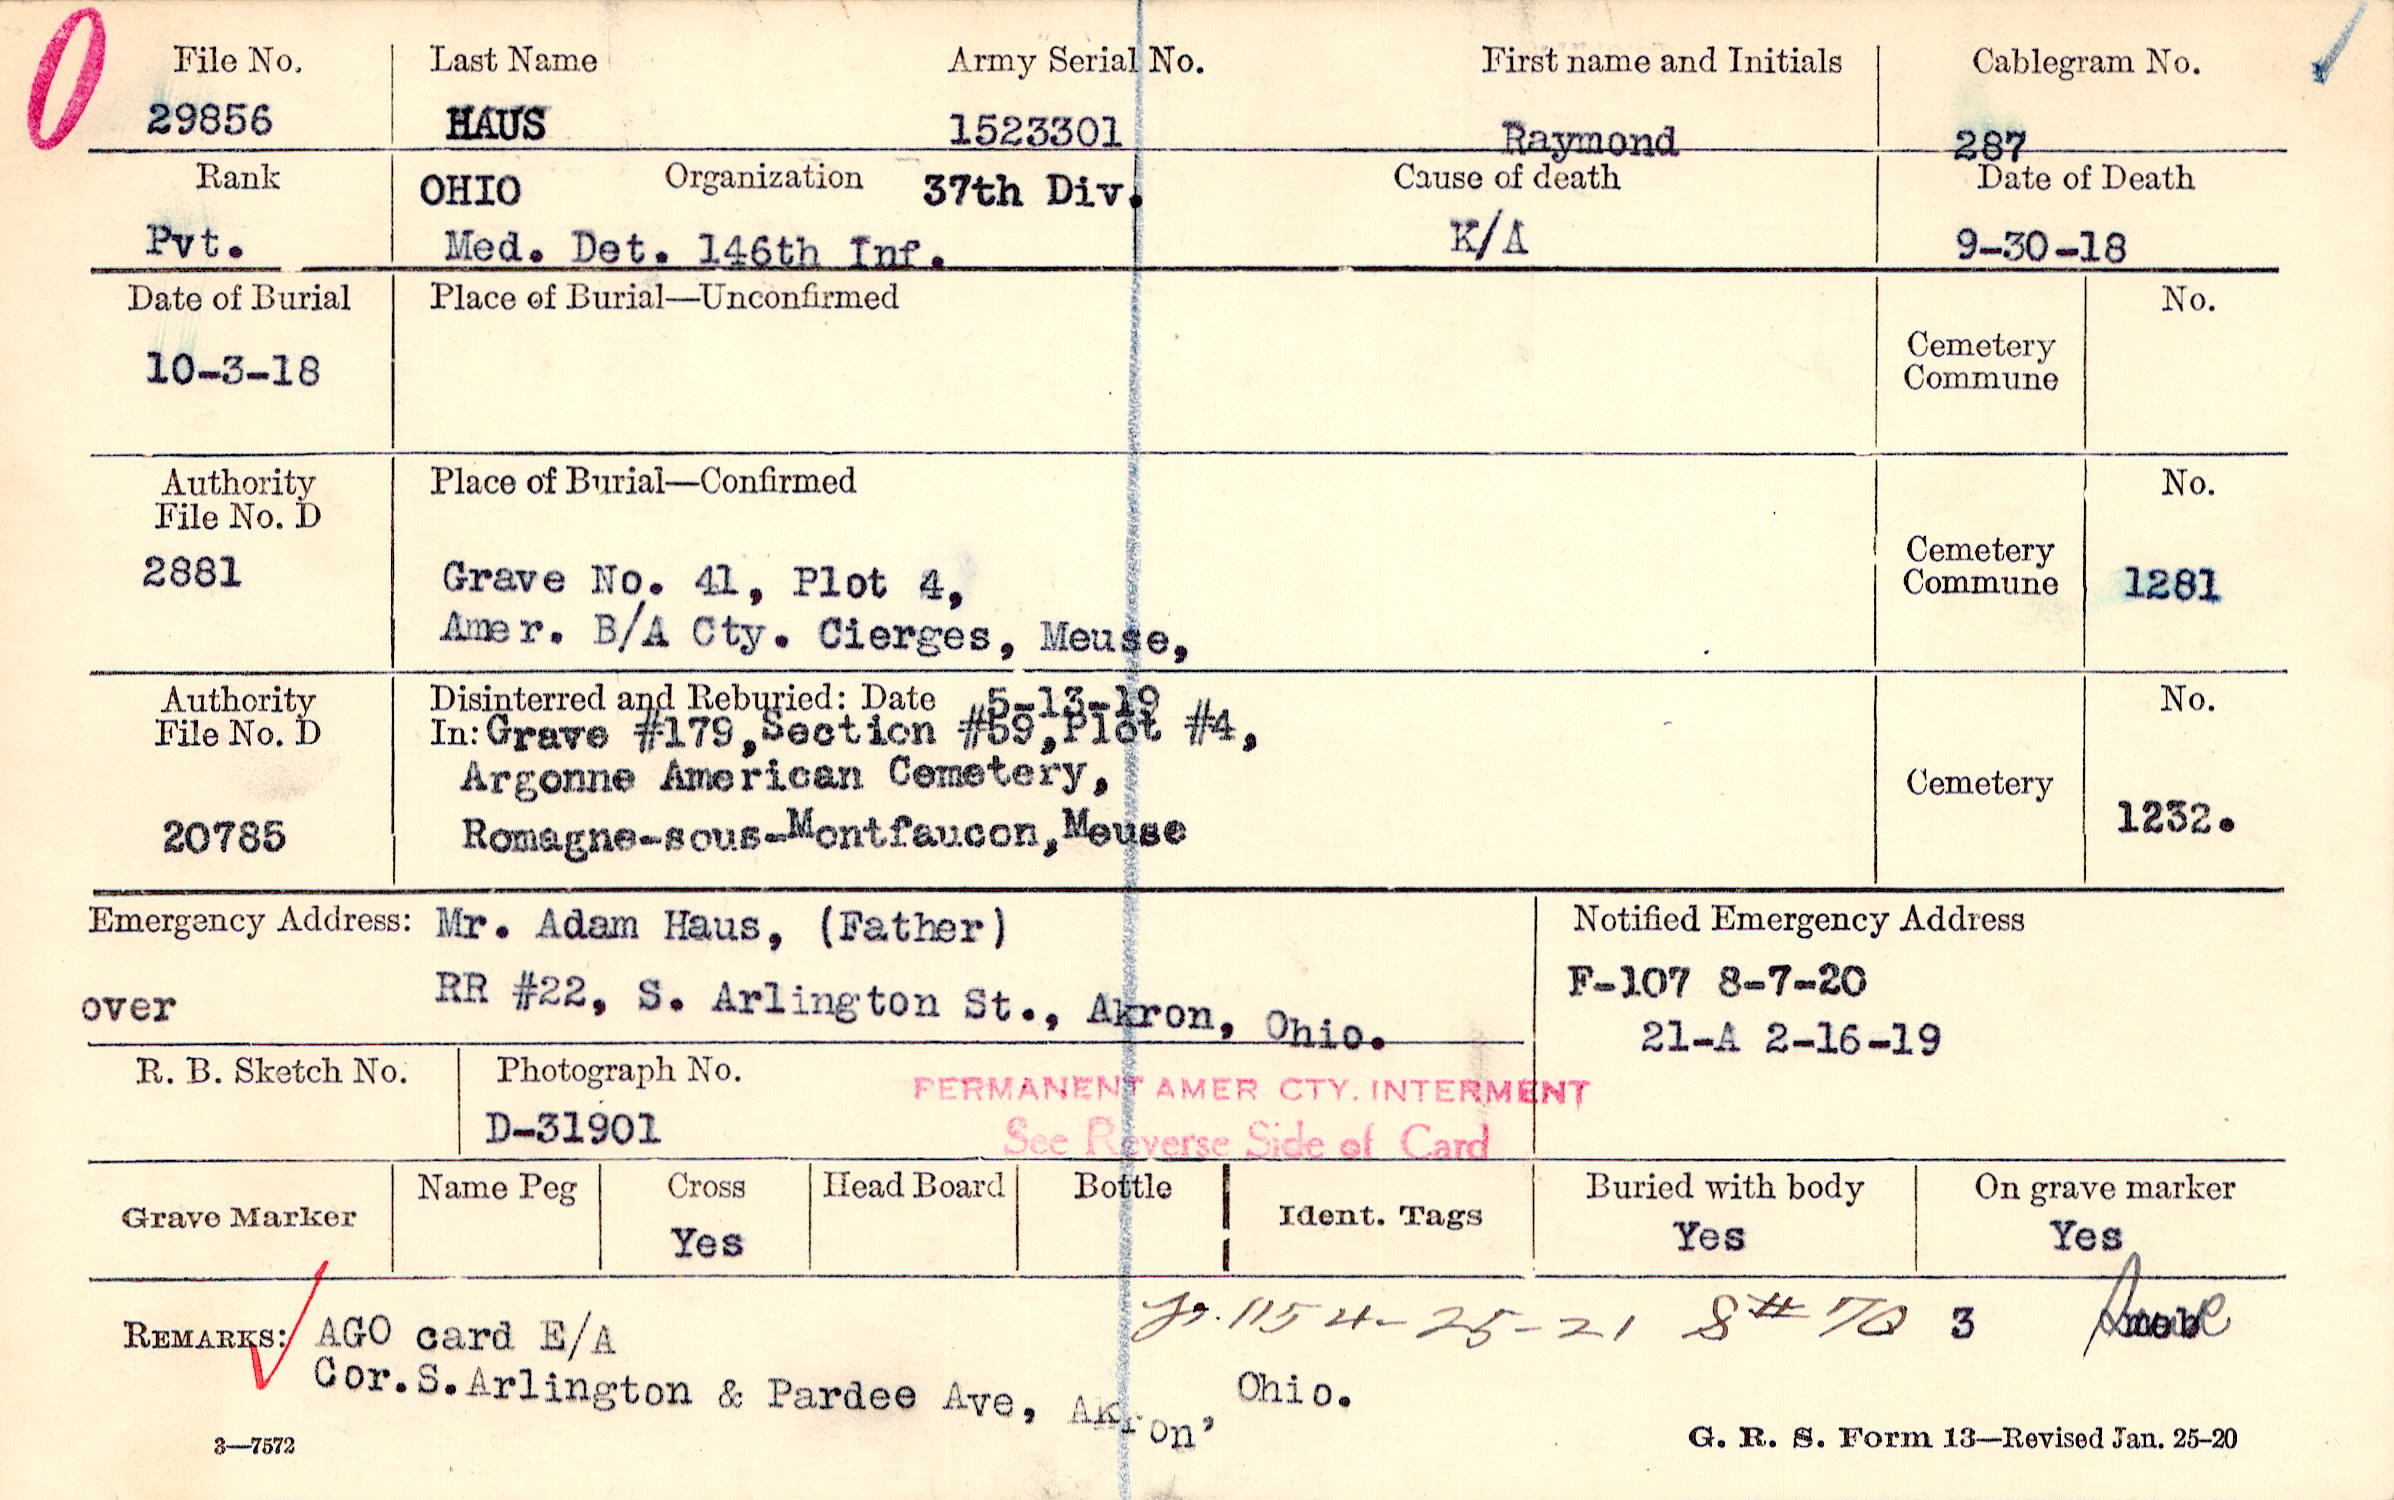 File No. Last Name Army Serial No. First name and Initials Cablegram No.
29856 HAUS 1523301 Raymond 287
Rank OHIO Organization 37th Div. Cause of death Date of Death
Pvt. Med. Det. 146th Inf. K/A 9-30-18
Date of Burial Place of Burial—Unconfirmed No.
10-3-18 Cemetery
Commune
Authority Place of Burial—Confirmed No.
File No. D
2881 Grave No. 41, Plot 4, Cemetery
Commune 1281
Amer. B/A Cty. Cierges, Meuse,
Authority Disinterred and Reburied: Date 5-13-19 No.
File No. D In: Grave #179, Section #59, Plot #4,
Argonne American Cemetery, Cemetery
20785 Romagne-sous-Montfaucon, Meuse 1232.
Emergency Address: Mr. Adam Haus, (Father) Notified Emergency Address
over RR #22, S. Arlington St., Akron, Ohio. F-107 8-7-20
21-A 2-16-19
R. B. Sketch No. Photograph No.
D-31901
PERMANENT AMER CTY. INTERMENT
See Reverse Side of Card
Grave Marker Name Peg Cross Head Board Bottle Ident. Tags Buried with body On grave marker
Yes Yes Yes
REMARKS: AGO card E/A 115 4-25-21 S# 70 3
Cor. S. Arlington & Pardee Ave, Akron, Ohio.
3—7572 G. R. S. Form 13—Revised Jan. 25-20